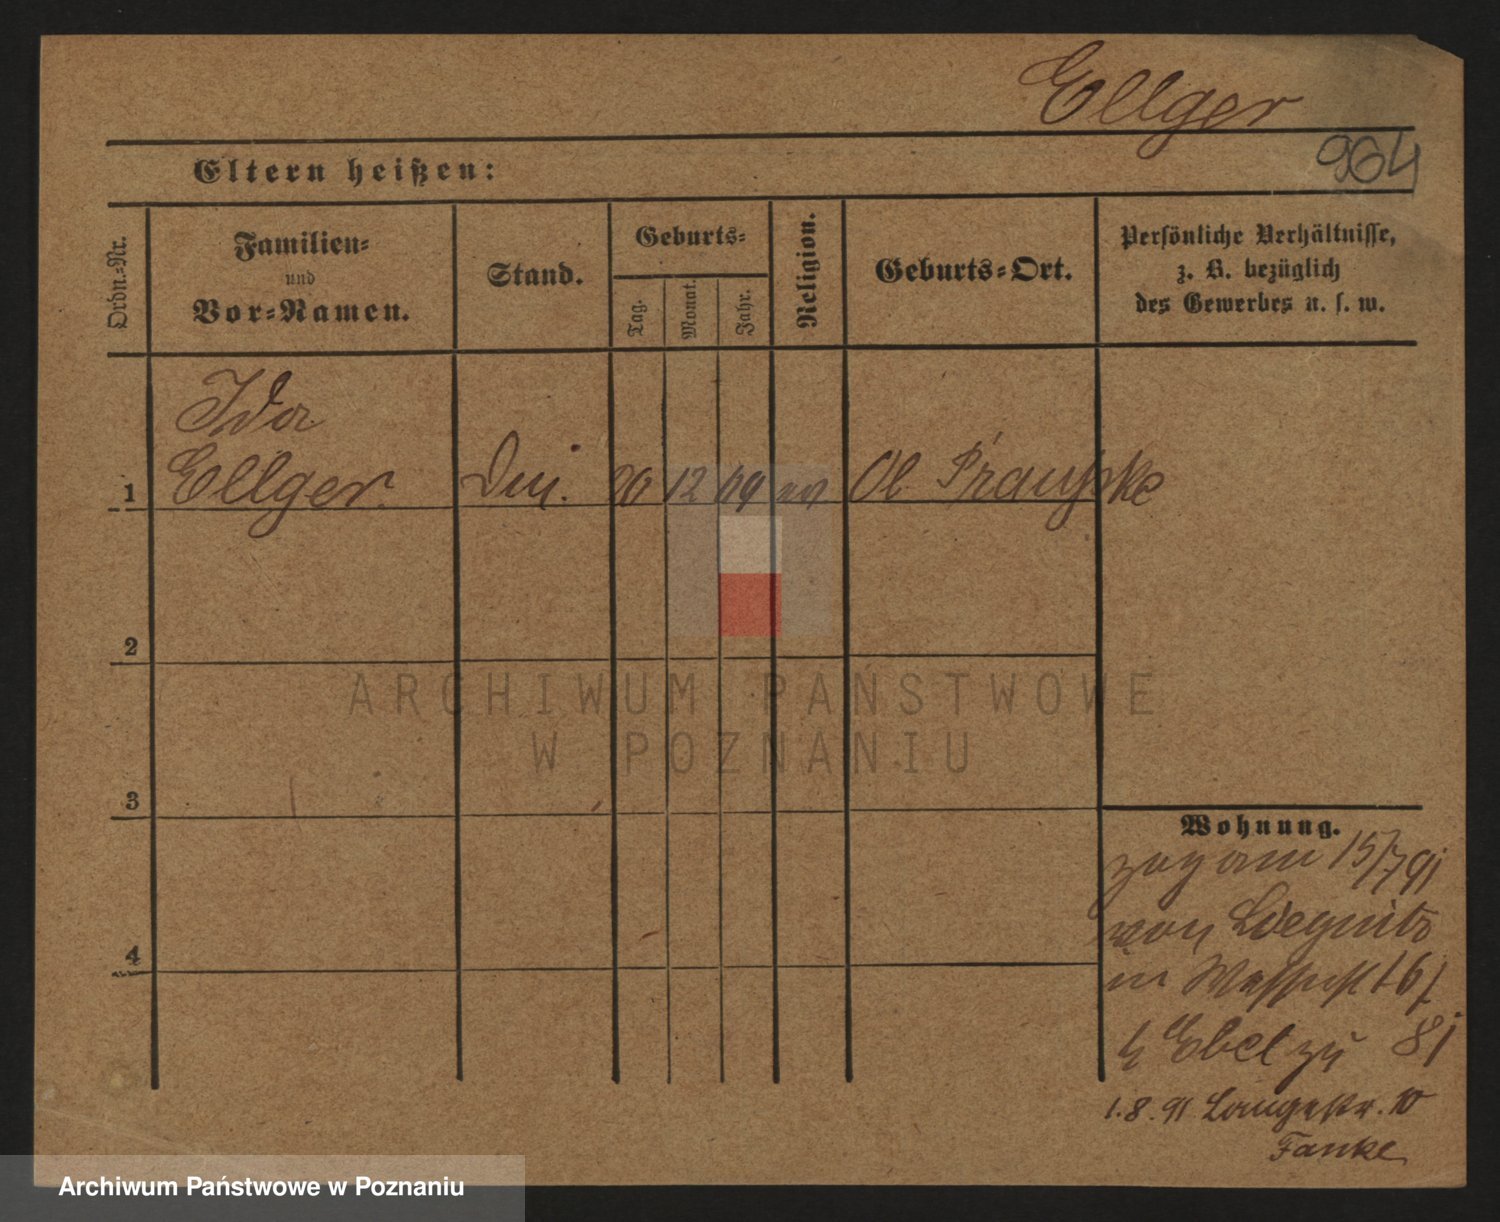 Ellger
964
Eltern heißen:
Ordn.=Nr.
Familien=
und
Vor=Namen.
Stand.
Geburts=
Tag.
Monat.
Jahr.
Religion.
Geburts=Ort.
Persönliche Verhältnisse,
z. B. bezüglich
des Gewerbes u. s. w.
Ida
1 Ellger. 20 12 69 ev Ol Prauske
2
3
4
ARCHIWUM PAŃSTWOWE
W POZNANIU
Wohnung.
zog am 15/7 91
von Liegnitz
in 16/
b Ebel zu 81
1.8.91 Langestr. 10
Fanke
Archiwum Państwowe w Poznaniu